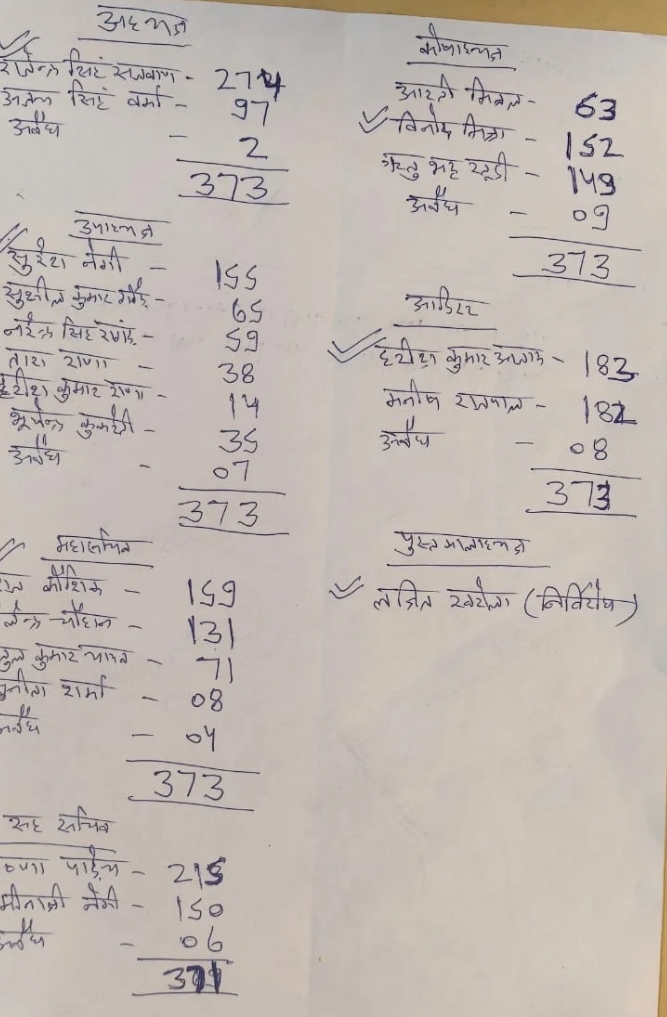 अध्यक्ष
राजेन्द्र सिंह सजवाण - 274
सिंह वर्मा - 97
अवैध - 2
373
उपाध्यक्ष
सुरेश नेगी - 155
सुशील कुमार गौड़ - 65
नरेन्द्र सिंह - 59
तारा राणा - 38
हरीश कुमार राणा - 14
भूपेन्द्र कुकरेती - 35
अवैध - 07
373
महासचिव
कौशिक - 159
चौहान - 131
कुमार - 71
शर्मा - 08
अवैध - 04
373
सह सचिव
पाण्डेय - 215
मीनाक्षी नेगी - 150
अवैध - 06
371
कोषाध्यक्ष
आरती मित्तल - 63
विनोद मिश्रा - 152
ऋतु भट्ट रतूड़ी - 149
अवैध - 09
373
आडिटर
हरीश कुमार - 183
मनीष राजपाल - 182
अवैध - 08
373
पुस्तकालाध्यक्ष
ललित (निर्विरोध)